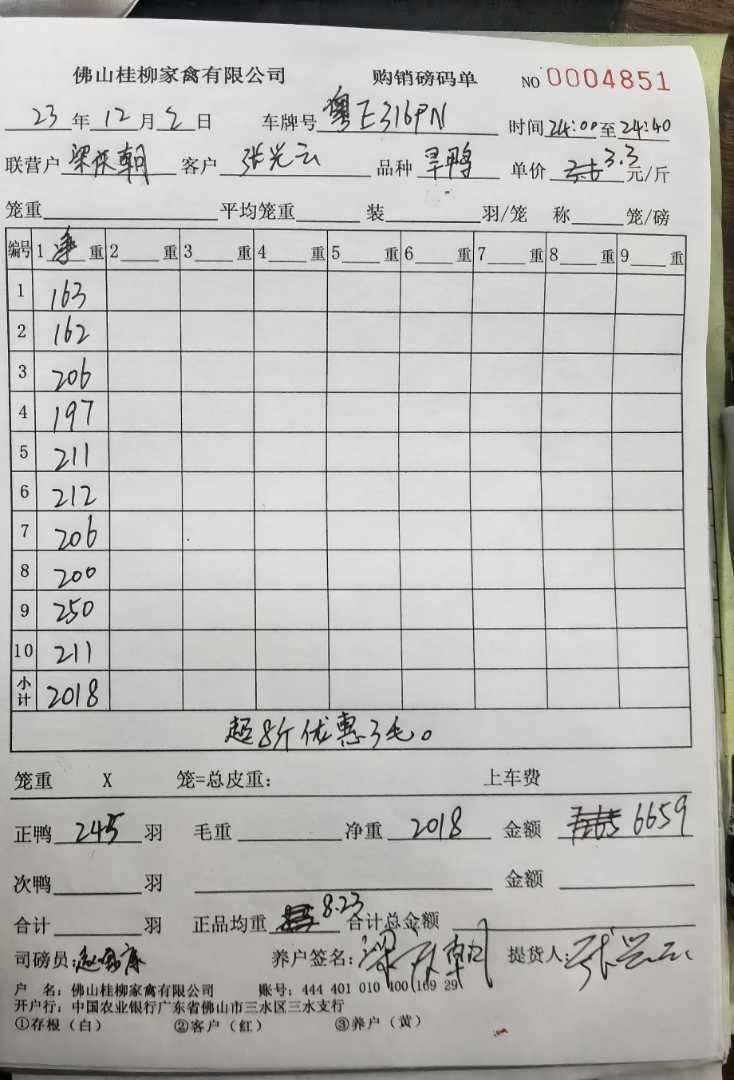 佛山桂柳家禽有限公司 购销磅码单 NO 0004851
23年12月2日 车牌号 粤E316PN 时间24:00至24:40
联营户 梁保朝 客户 张兴云 品种 旱鸭 单价 3.3元/斤
笼重 平均笼重 装 羽/笼 称 笼/磅
编号 1 净 重 2 重 3 重 4 重 5 重 6 重 7 重 8 重 9 重
1 163
2 162
3 206
4 197
5 211
6 212
7 206
8 200
9 250
10 211
小计 2018
超8斤优惠3毛。
笼重 X 笼=总皮重: 上车费
正鸭 245 羽 毛重 净重 2018 金额 6659
次鸭 羽 金额
合计 羽 正品均重 8.23 合计总金额
司磅员: 养户签名: 梁保朝 提货人: 张兴云
户 名: 佛山桂柳家禽有限公司 账号: 444 401 010 400 169 29
开户行: 中国农业银行广东省佛山市三水区三水支行
①存根(白) ②客户(红) ③养户(黄)